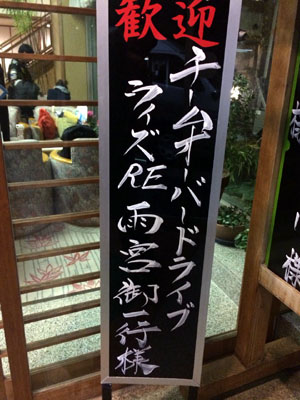 歓迎
チームオーバードライブ
ライズRE雨宮御一行様
様